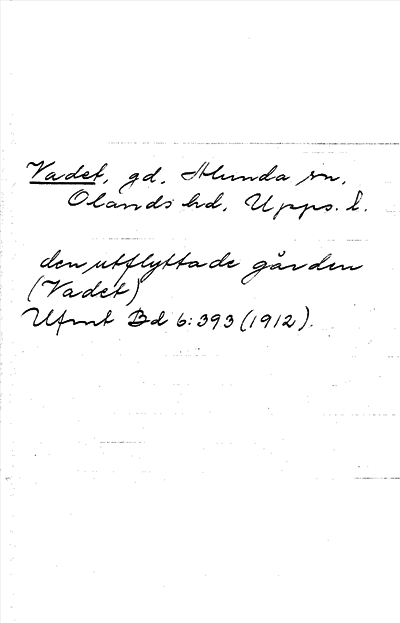 Vadet, gd, Alunda sn,
Olands hd, Upps. l.
den utflyttade gården
(Vadet)
Ufmt Bd 6:393 (1912).